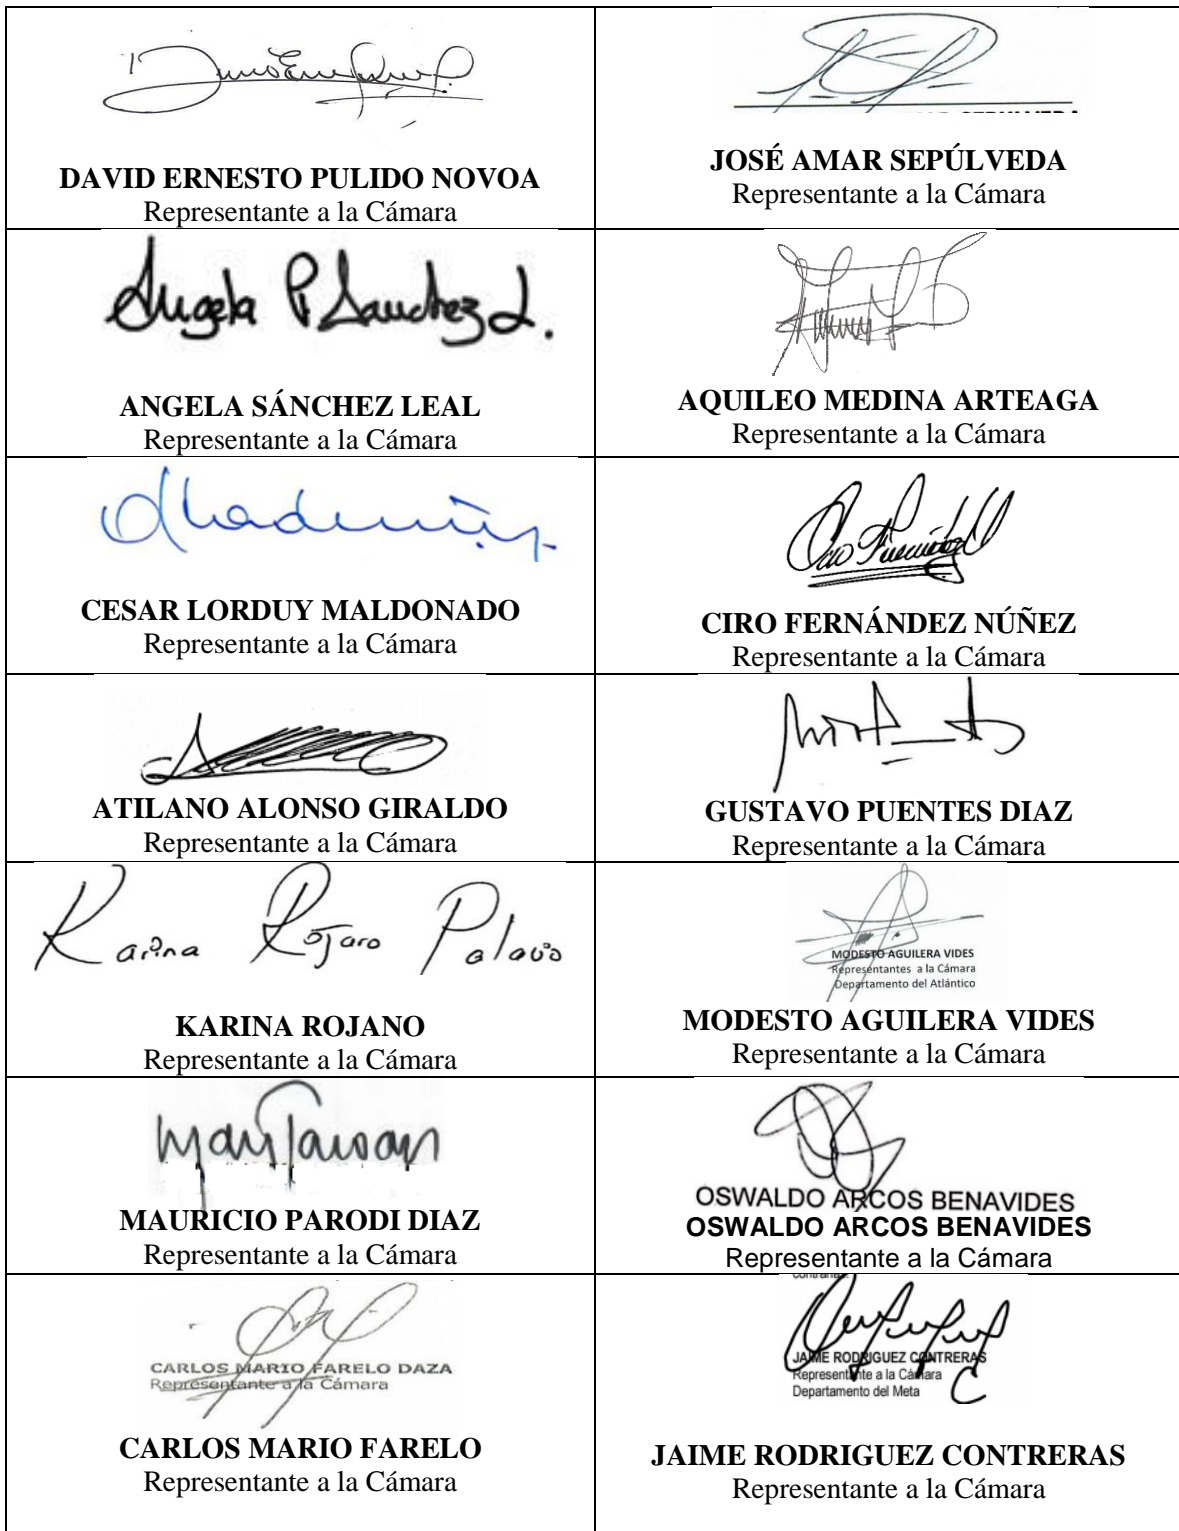 DAVID ERNESTO PULIDO NOVOA
Representante a la Cámara
JOSÉ AMAR SEPÚLVEDA
Representante a la Cámara
Angela P Sanchez L.
ANGELA SÁNCHEZ LEAL
Representante a la Cámara
AQUILEO MEDINA ARTEAGA
Representante a la Cámara
CESAR LORDUY MALDONADO
Representante a la Cámara
CIRO FERNÁNDEZ NÚÑEZ
Representante a la Cámara
ATILANO ALONSO GIRALDO
Representante a la Cámara
GUSTAVO PUENTES DIAZ
Representante a la Cámara
Karina Rojano Palacio
KARINA ROJANO
Representante a la Cámara
MODESTO AGUILERA VIDES
Representantes a la Cámara
Departamento del Atlántico
MODESTO AGUILERA VIDES
Representante a la Cámara
MAURICIO PARODI DIAZ
Representante a la Cámara
OSWALDO ARCOS BENAVIDES
OSWALDO ARCOS BENAVIDES
Representante a la Cámara
CARLOS MARIO FARELO DAZA
Representante a la Cámara
CARLOS MARIO FARELO
Representante a la Cámara
JAIME RODRIGUEZ CONTRERAS
Representante a la Cámara
Departamento del Meta
JAIME RODRIGUEZ CONTRERAS
Representante a la Cámara